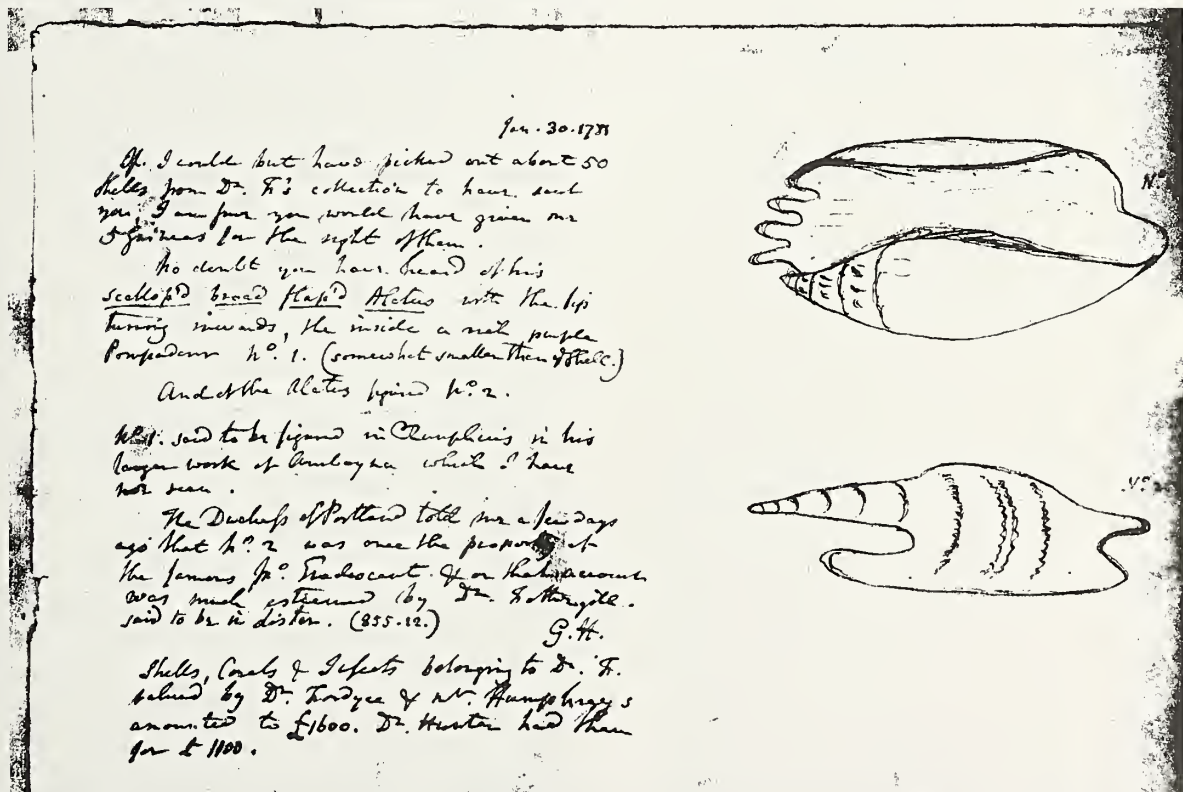 Jan. 30. 17
If I could but have picked out about 50
Shells from Dr. F's collection to have sent
you, I am sure you would have given me
5 Guineas for the sight of them.
No doubt you have heard of his
scallop'd broad flap'd Alatus with the lip
turning inwards, the inside a rich purple
Pompadour No. 1. (somewhat smaller than ye Shell.)
And of the Alatus figured No. 2.
No. 1. said to be figured in in his
larger work of Amboyna which I have
not seen.
The Duchess of Portland told me a few days
ago that No. 2 was once the property of
the famous Jno. Tradescant & on that account
was much esteemed by Dr. Fothergill.
said to be in Lister. (855.12.)
G. H.
Shells, Corals & Insects belonging to Dr. F.
valued by Dr. Fordyce & Mr. Humphreys
amounted to £1600. Dr. Hunter had them
for £1100.
No
No. 2